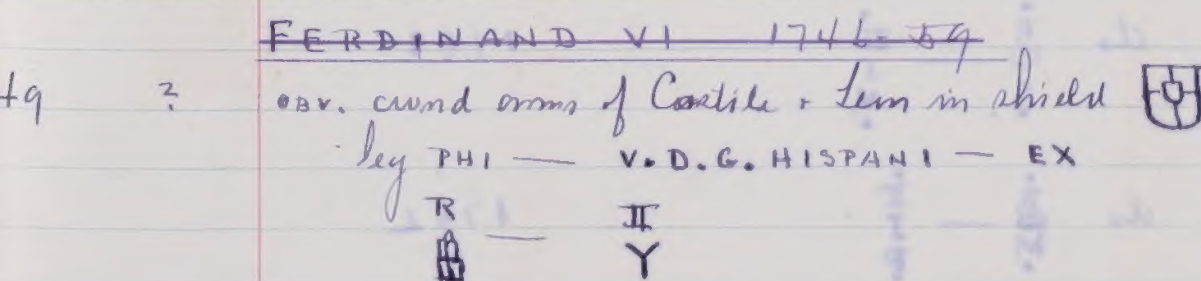 FERDINAND VI 1746-59
49 ? OBV. crwnd arms of Castile + Leon in shield
leg PHI — V.D.G. HISPANI — EX
R — II
Y